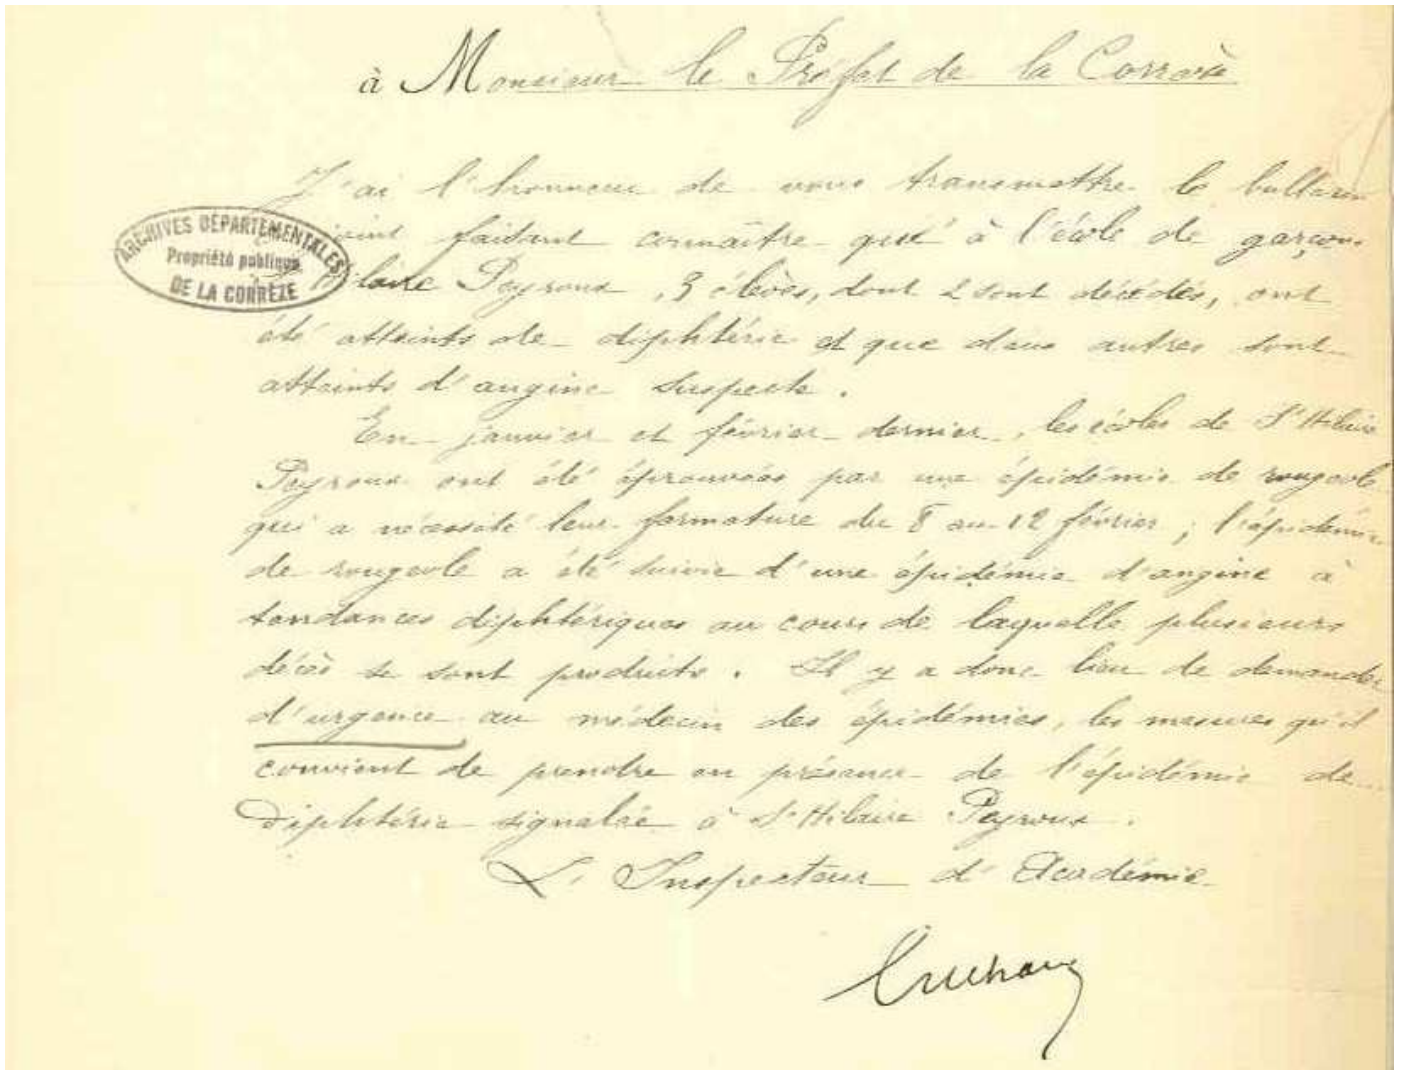 à Monsieur le Préfet de la Corrèze
J'ai l'honneur de vous transmettre le bulletin
ci-joint faisant connaître qu'à l'école de garçons
Hilaire Peyroux, 3 élèves, dont 2 sont décédés, ont
été atteints de diphtérie et que deux autres sont
atteints d'angine suspecte.
En janvier et février dernier, les écoles de St Hilaire
Peyroux ont été éprouvées par une épidémie de rougeole
qui a nécessité leur fermeture du 8 au 12 février ; l'épidémie
de rougeole a été suivie d'une épidémie d'angine à
tendances diphtériques au cours de laquelle plusieurs
décès se sont produits. Il y a donc lieu de demander
d'urgence au médecin des épidémies, les mesures qu'il
convient de prendre en présence de l'épidémie de
diphtérie signalée à St Hilaire Peyroux.
L'Inspecteur d'Académie
ARCHIVES DÉPARTEMENTALES
Propriété publique
DE LA CORRÈZE